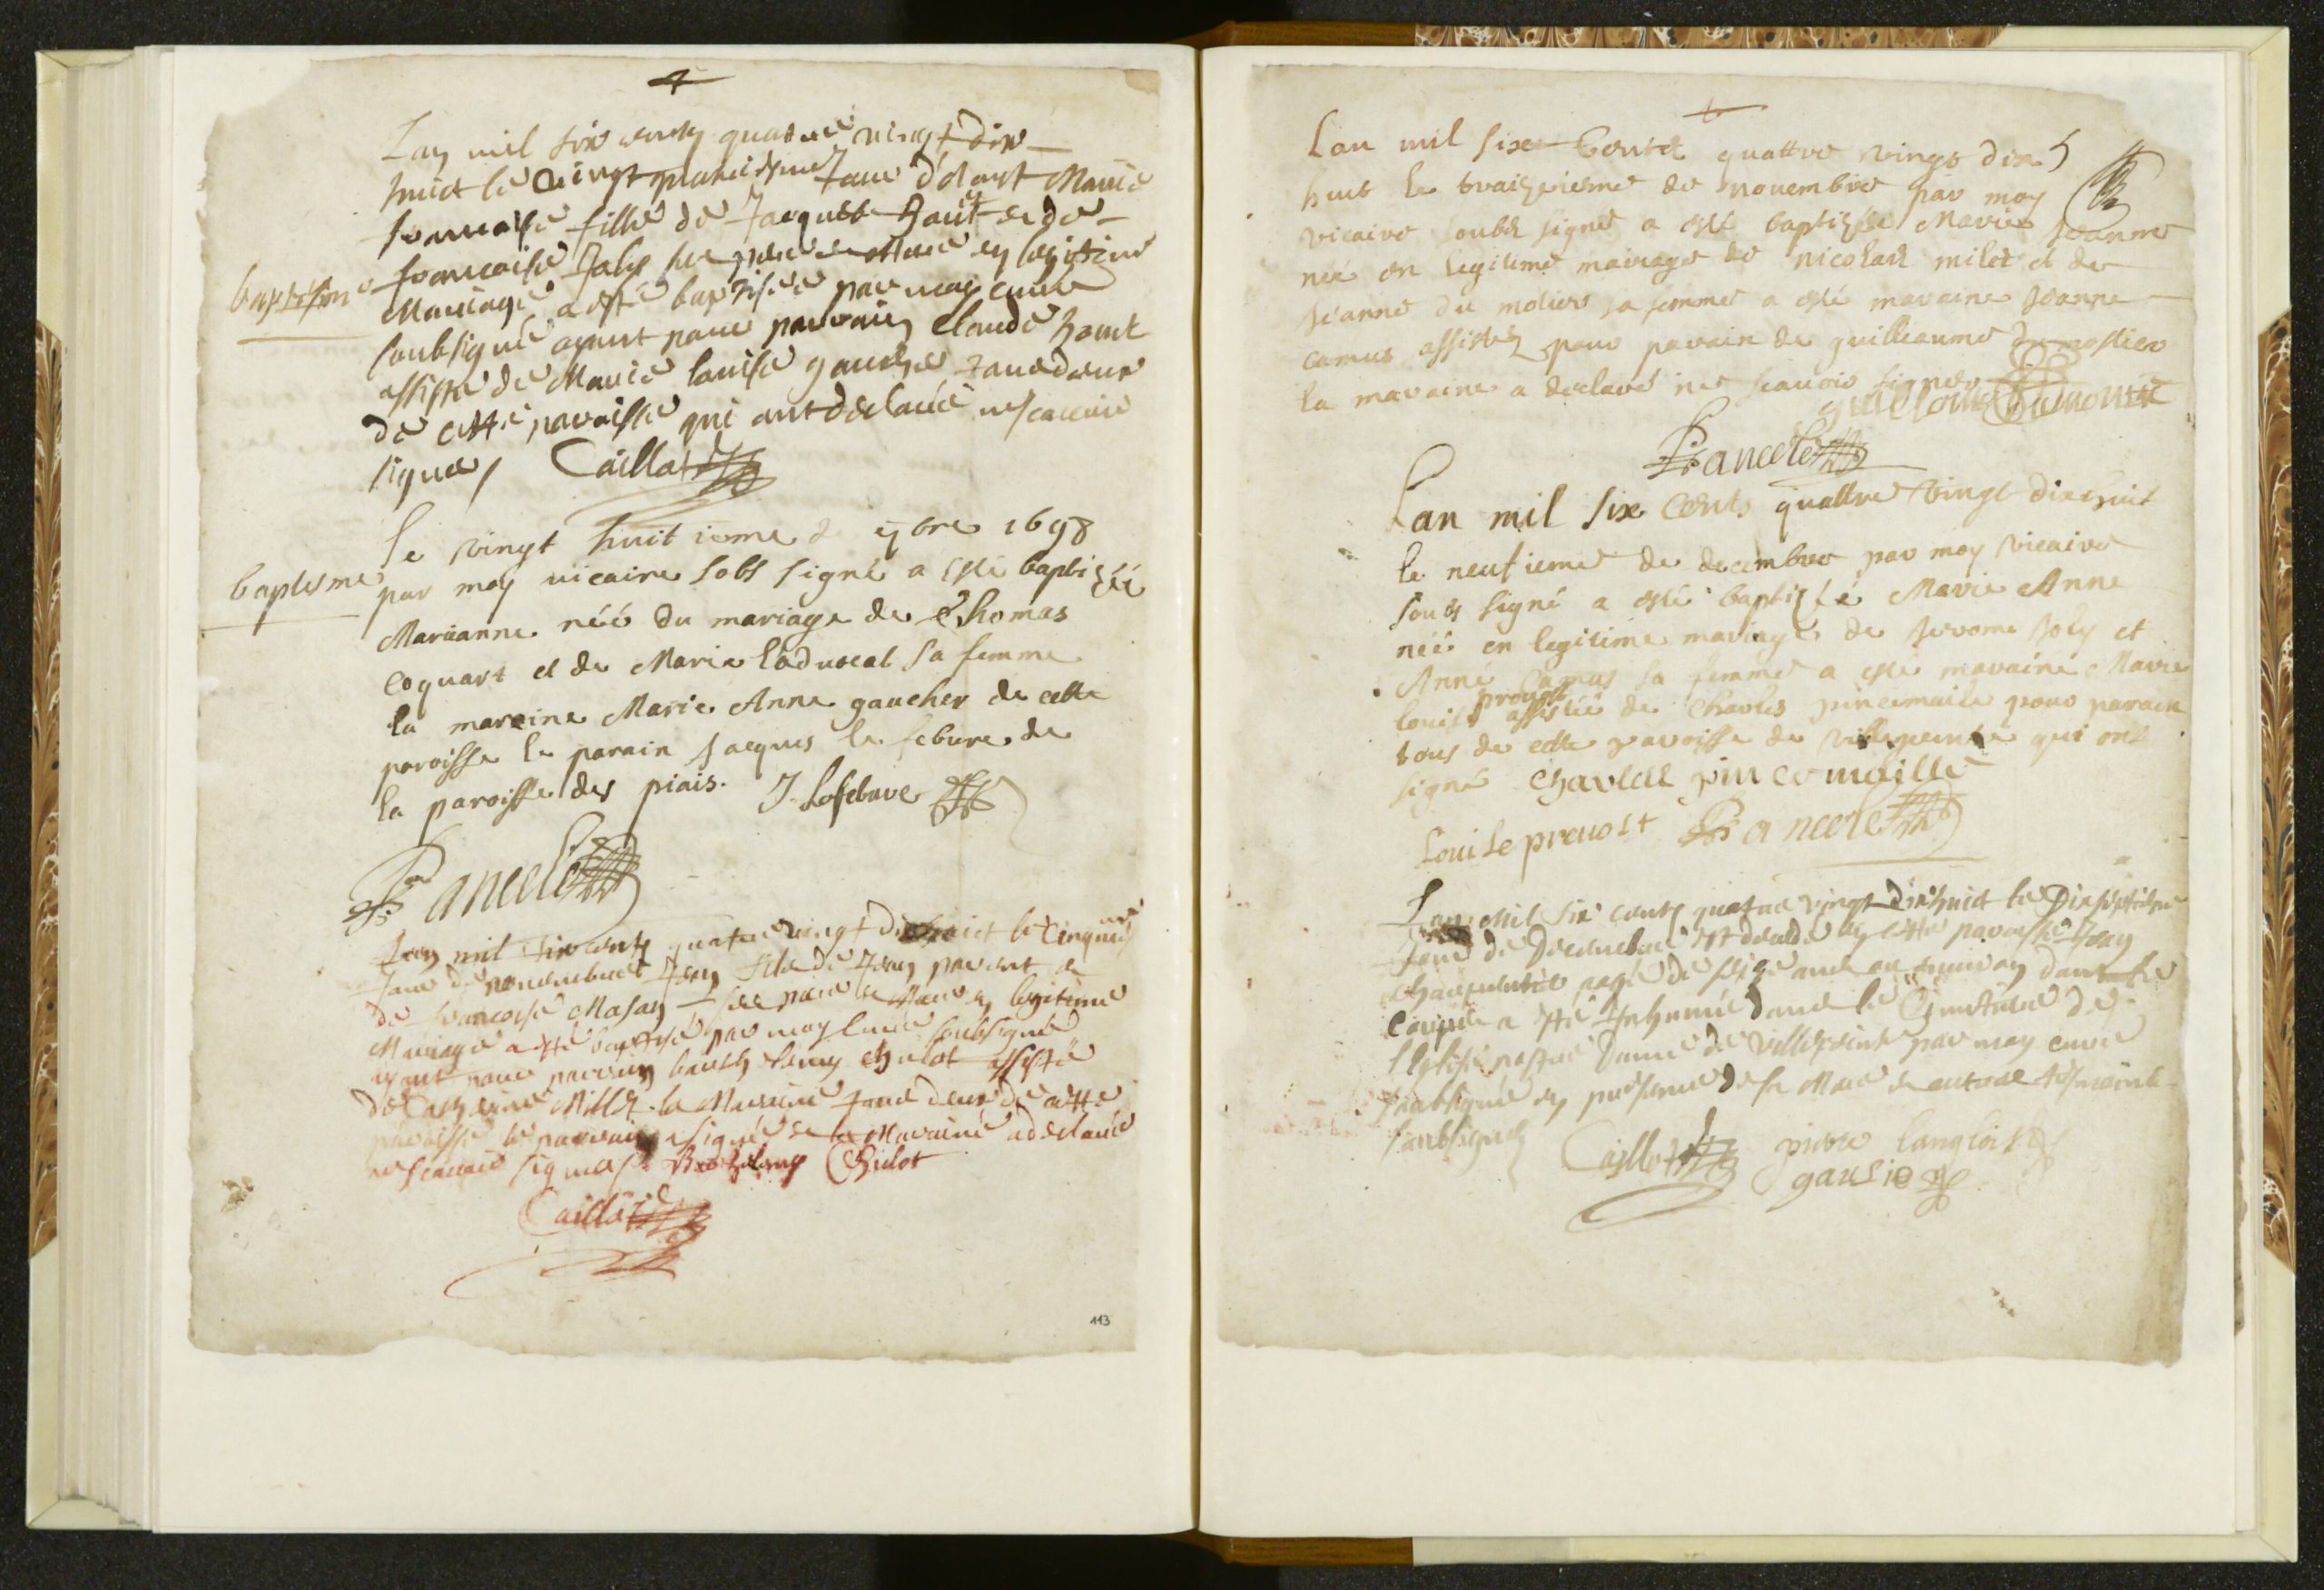 Lan mil six cents quatre vingt dix
huict le vingt jour d'aoust Marie
francoise fille de Jacques haut et de
baptesme
francoise Joly ses pere et Mere en legitime
Mariage a esté baptisée par moy curé
soubsigné ayant pour parrain Claude haut
assisté de Marie louise gaucher tous deux
de cette paroisse qui ont declaré ne scavoir
signer / Caillat
le vingt huit ieme 1698
baptesme
par moy vicaire sobs signé a esté baptizéé
Marianne néé du mariage de Thomas
coquart et de Marie Laduocat sa femme
la maraine Marie Anne gaucher de cette
paroisse le parain Jacques le febure de
la paroisse des piais. J. Lefebure
Lan mil six cents quatre vingt dixhuict le cinquie
Jour de novembre Jean fils de Jean parent et
de francoise Masan ses pere et Mere en legitime
Mariage a esté baptisé par moy Curé soubsigné
ayant pour parrain Chulot assisté
de Catherine Millet la Maraine tous deux de cette
paroisse le parrain a signé et la Maraine a declaré
ne scavoir signer Chulot
Caillat
113
Lan mil six Cents quattre vingt dix
huit le traizeiesme de nouembre par moy
vicaire soubs signé a esté baptizée Marie Jeanne
neé en legitime mairage de nicolas milet et de
Jeanne du motier sa femme a esté maraine Jeanne
camus assistez pour parain de guilleaume Dumostier
la maraine a declaré ne scauoir signer
Lan mil six Cents quattre vingt dixhuit
le neufieme de decembre par moy vicaire
soubs signé a esté baptizéé Marie Anne
néé en legitime mariage de Jerome Joly et
Anne Camus sa femme a esté maraine Marie
prevost
louise assistée de Charles pincemaille pour parain
tous de cette paroisse de villepeinte qui ont
signé Charles pincemaille
Louise preuost
Lan Mil six cents quatre vingt dixhuict le Dixseptiesme
Jour de Decembre est decedé en cette paroisse Jean
Charpentier aagé de seize ans ou environ dont le
Corps a esté Inhumé dans le Cimetiere de
l'Eglise nostre Dame de villepeinte par moy curé
soubsigné en presence de sa Mere et autres tesmoins
soubsignez Caillat pierre langlois
gausie